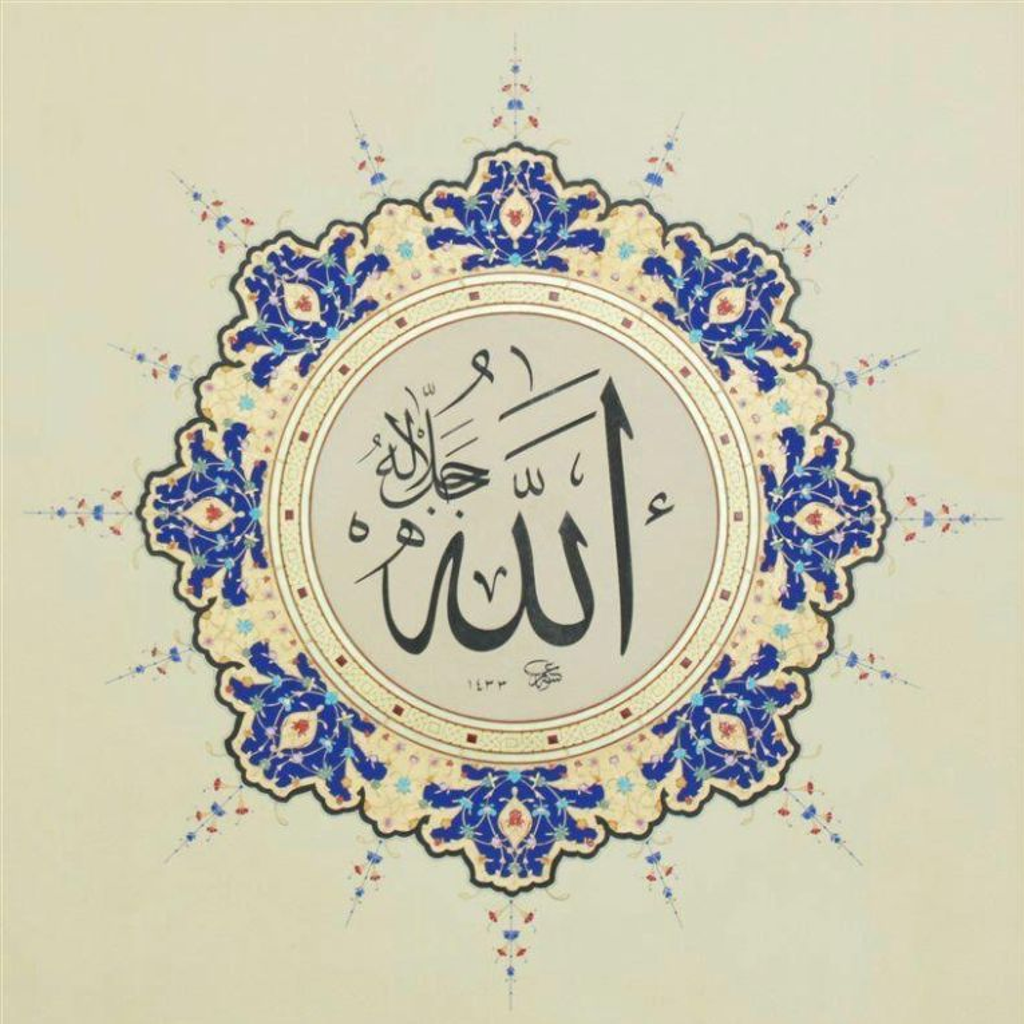 اَللّٰهُ
جَلَّ جَلَالُهُ
١٤٣٣